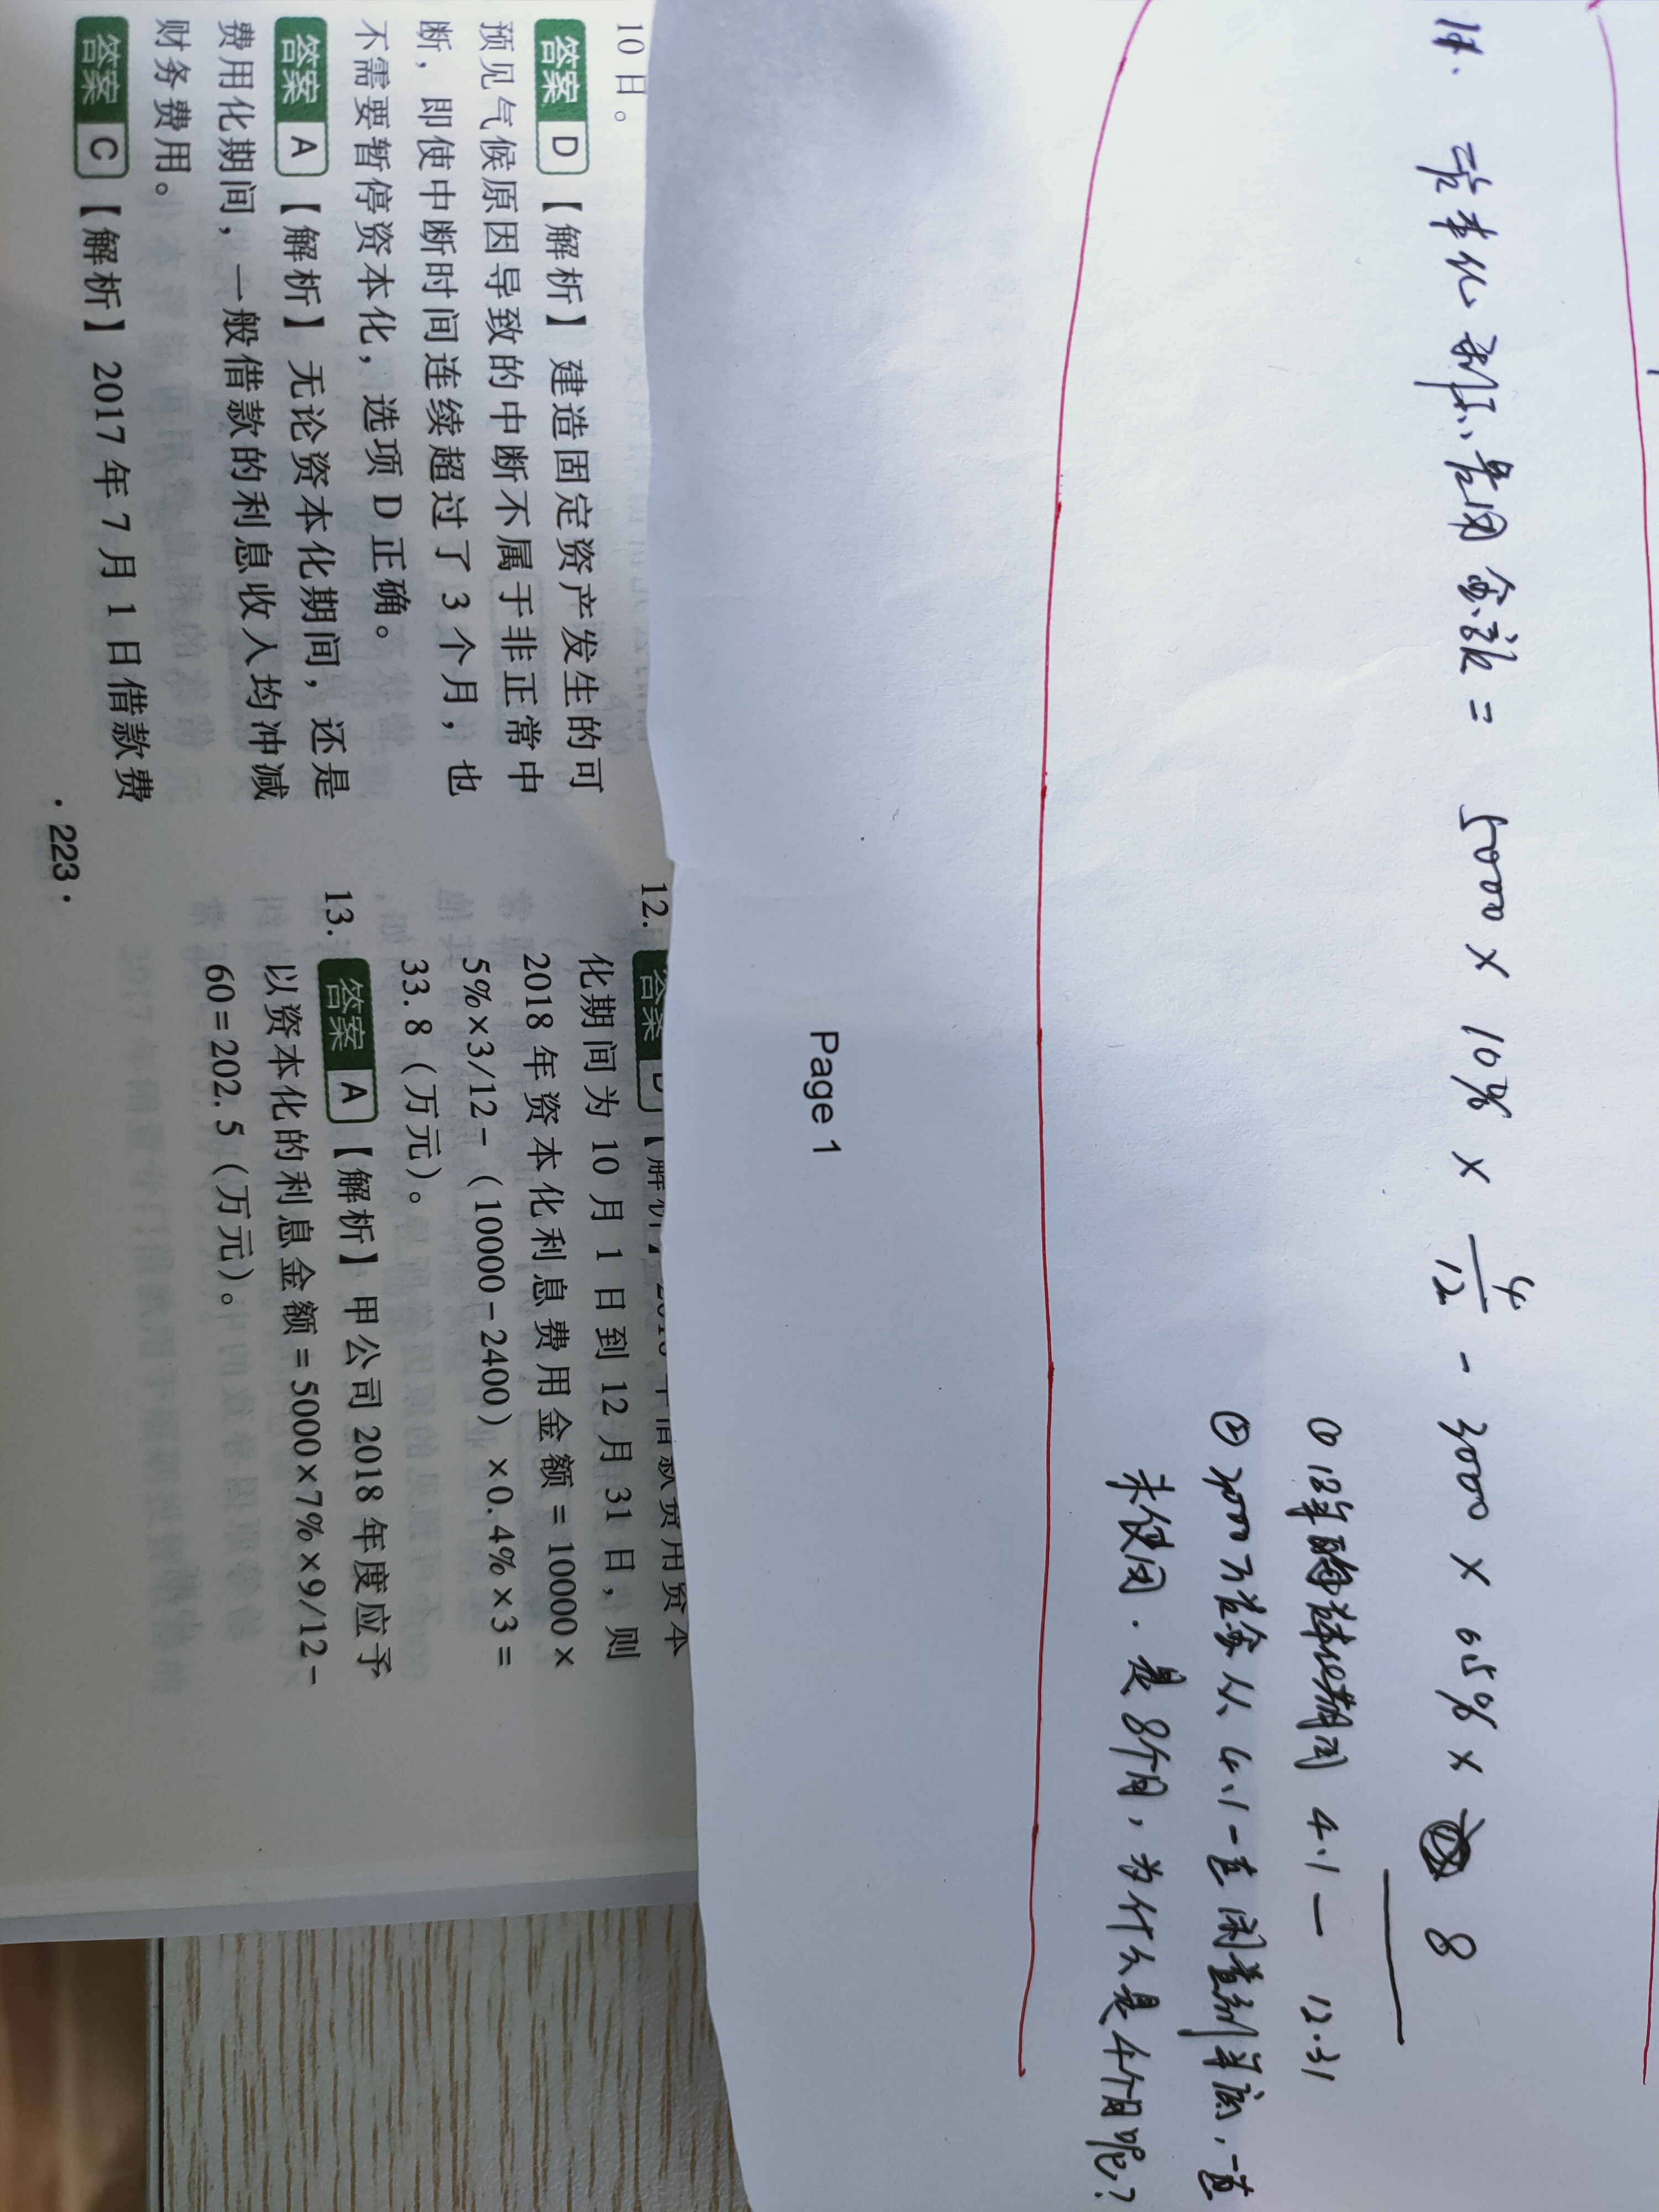 11. 资本化利息费用金额 = 5000 × 10% × 4/12 - 3000 × 0.5% × 8
① 13年 资本化期间 4.1 — 12.31
② 3000万资金从 4.1一直闲置到年底，一直
未使用．是8个月，为什么是4个月呢？
Page 1
10日。
答案 D 【解析】建造固定资产发生的可
预见气候原因导致的中断不属于非正常中
断，即使中断时间连续超过了3个月，也
不需要暂停资本化，选项D正确。
答案 A 【解析】无论资本化期间，还是
费用化期间，一般借款的利息收入均冲减
财务费用。
答案 C 【解析】2017年7月1日借款费
12. 答案
化期间为10月1日到12月31日，则
2018年资本化利息费用金额=10000×
5%×3/12-（10000-2400）×0.4%×3=
33.8（万元）。
13. 答案 A 【解析】甲公司2018年度应予
以资本化的利息金额=5000×7%×9/12-
60=202.5（万元）。
· 223 ·